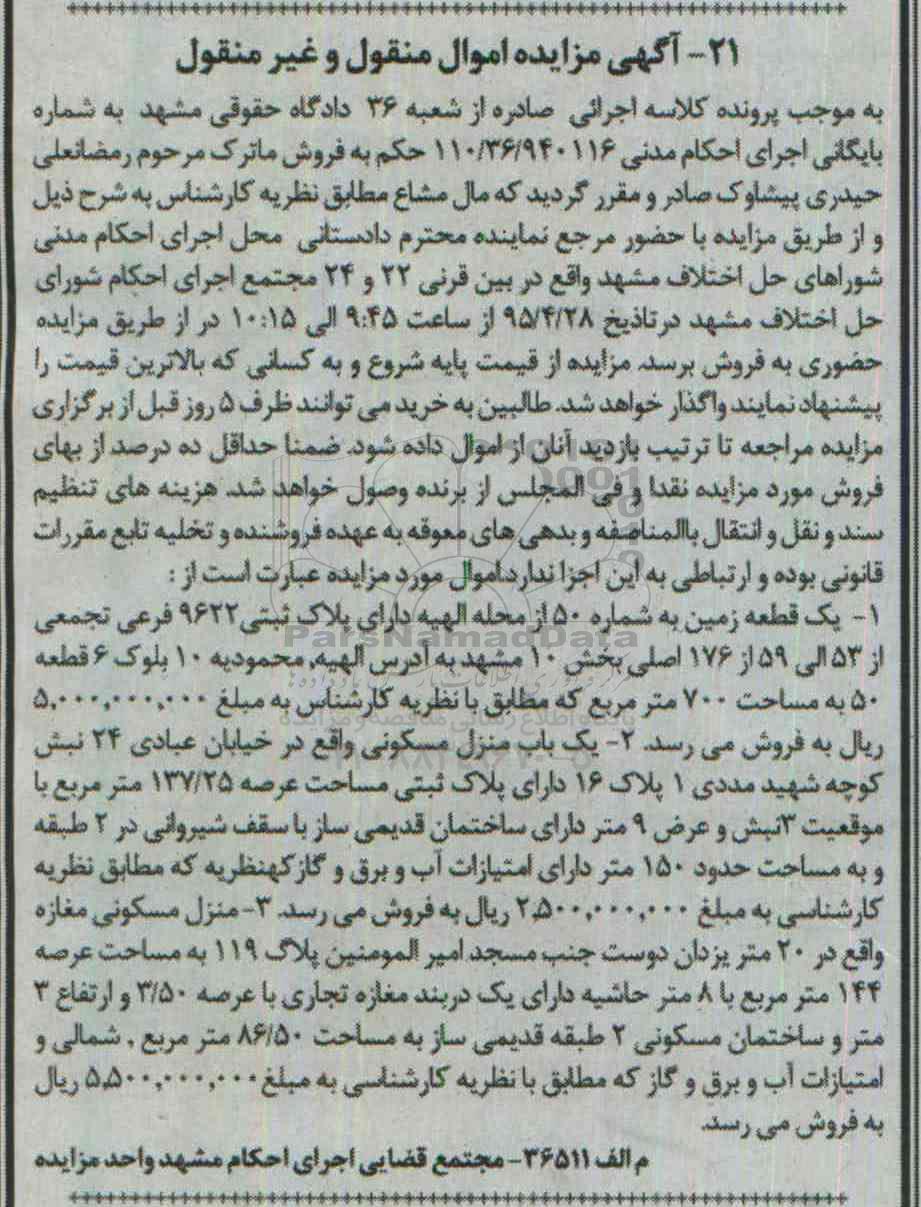 ۲۱- آگهی مزایده اموال منقول و غیر منقول
به موجب پرونده کلاسه اجرائی صادره از شعبه ۳۶ دادگاه حقوقی مشهد به شماره
بایگانی اجرای احکام مدنی ۱۱۰/۳۶/۹۴۰۱۱۶ حکم به فروش ماترک مرحوم رمضانعلی
حیدری پیشاوک صادر و مقرر گردید که مال مشاع مطابق نظریه کارشناس به شرح ذیل
و از طریق مزایده با حضور مرجع نماینده محترم دادستانی محل اجرای احکام مدنی
شوراهای حل اختلاف مشهد واقع در بین قرنی ۲۲ و ۲۴ مجتمع اجرای احکام شورای
حل اختلاف مشهد درتاذیخ ۹۵/۴/۲۸ از ساعت ۹:۴۵ الی ۱۰:۱۵ در از طریق مزایده
حضوری به فروش برسد. مزایده از قیمت پایه شروع و به کسانی که بالاترین قیمت را
پیشنهاد نمایند واگذار خواهد شد. طالبین به خرید می توانند ظرف ۵ روز قبل از برگزاری
مزایده مراجعه تا ترتیب بازدید آنان از اموال داده شود. ضمنا حداقل ده درصد از بهای
فروش مورد مزایده نقدا و فی المجلس از برنده وصول خواهد شد. هزینه های تنظیم
سند و نقل و انتقال باالمناصفه و بدهی های معوقه به عهده فروشنده و تخلیه تابع مقررات
قانونی بوده و ارتباطی به این اجزا ندارد.اموال مورد مزایده عبارت است از :
۱- یک قطعه زمین به شماره ۵۰ از محله الهیه دارای پلاک ثبتی ۹۶۲۲ فرعی تجمعی
ParsNamadData
از ۵۳ الی ۵۹ از ۱۷۶ اصلی بخش ۱۰ مشهد به آدرس الهیه، محمودیه ۱۰ بلوک ۶ قطعه
۵۰ به مساحت ۷۰۰ متر مربع که مطابق با نظریه کارشناس به مبلغ ۵,۰۰۰,۰۰۰,۰۰۰
ریال به فروش می رسد. ۲- یک باب منزل مسکونی واقع در خیابان عبادی ۲۴ نبش
کوچه شهید مددی ۱ پلاک ۱۶ دارای پلاک ثبتی مساحت عرصه ۱۳۷/۲۵ متر مربع با
موقعیت ۳نبش و عرض ۹ متر دارای ساختمان قدیمی ساز با سقف شیروانی در ۲ طبقه
و به مساحت حدود ۱۵۰ متر دارای امتیازات آب و برق و گازکهنظریه که مطابق نظریه
کارشناسی به مبلغ ۲,۵۰۰,۰۰۰,۰۰۰ ریال به فروش می رسد. ۳- منزل مسکونی مغازه
واقع در ۲۰ متر یزدان دوست جنب مسجد امیر المومنین پلاک ۱۱۹ به مساحت عرصه
۱۴۴ متر مربع با ۸ متر حاشیه دارای یک دربند مغازه تجاری با عرصه ۳/۵۰ و ارتفاع ۳
متر و ساختمان مسکونی ۲ طبقه قدیمی ساز به مساحت ۸۶/۵۰ متر مربع , شمالی و
امتیازات آب و برق و گاز که مطابق با نظریه کارشناسی به مبلغ ۵,۵۰۰,۰۰۰,۰۰۰ ریال
به فروش می رسد.
م الف ۳۶۵۱۱- مجتمع قضایی اجرای احکام مشهد واحد مزایده